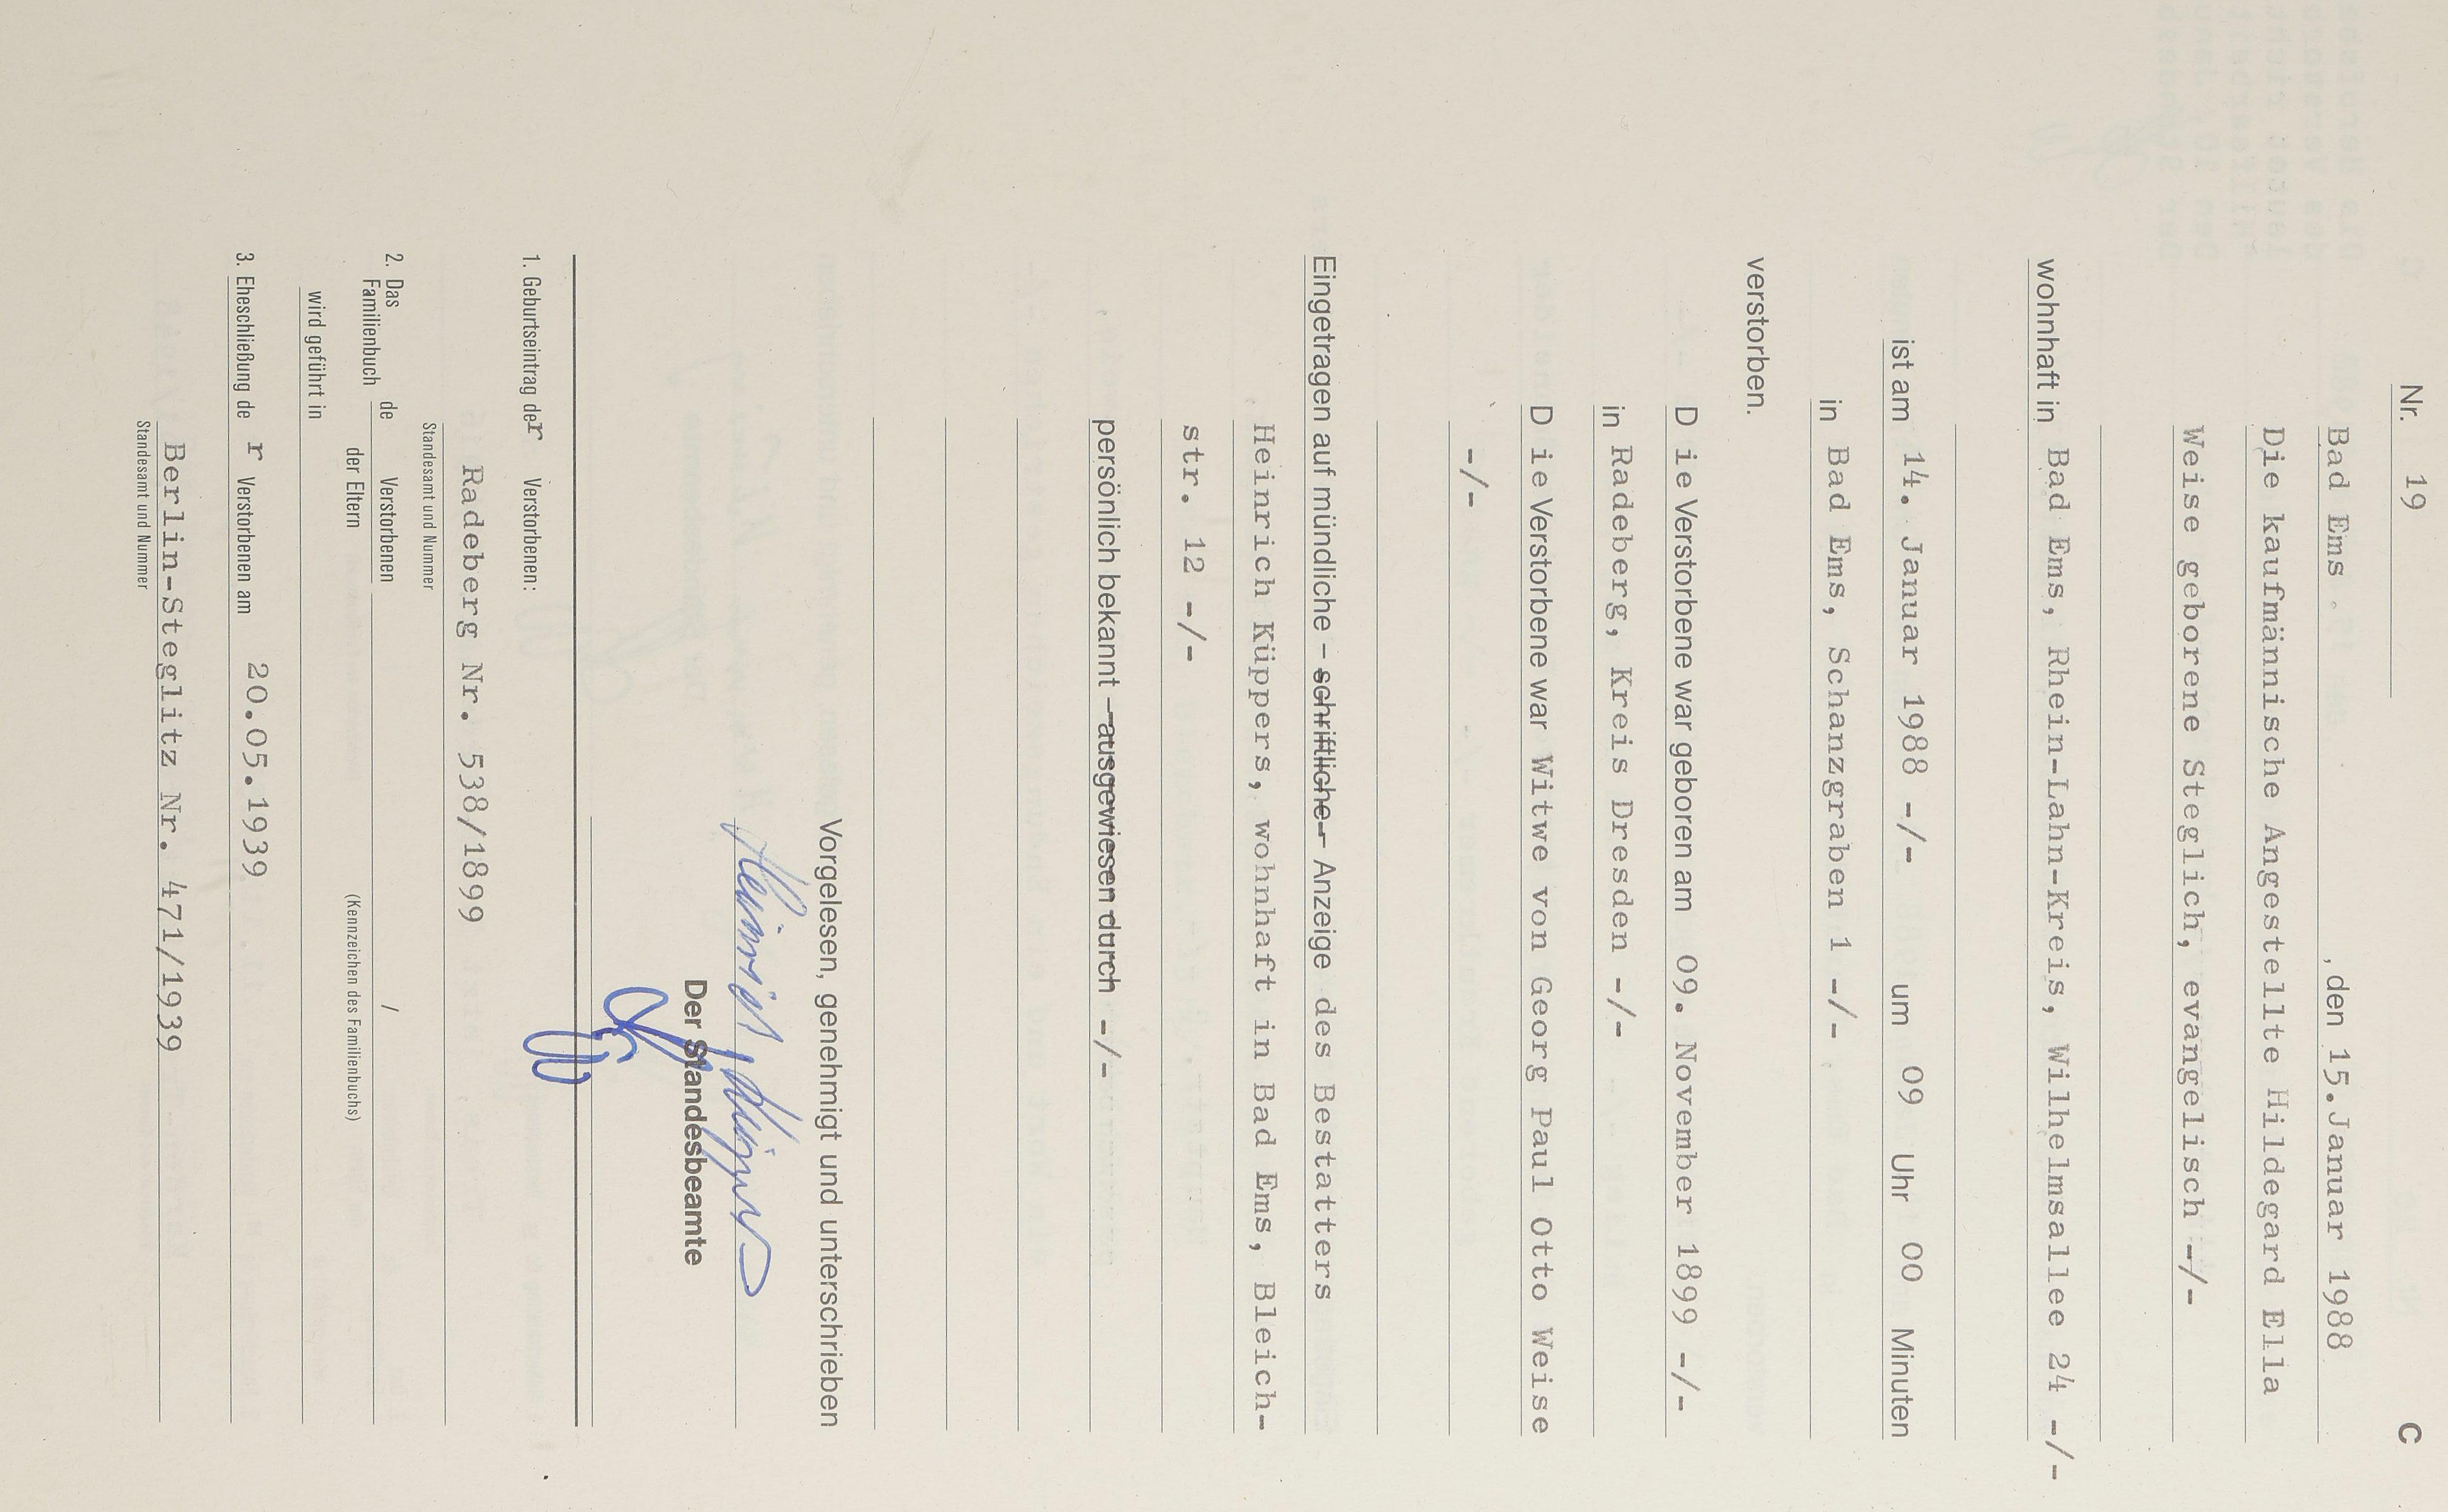 Nr. 19 C
Bad Ems , den 15.Januar 1988
Die kaufmännische Angestellte Hildegard Ella
Weise geborene Steglich, evangelisch -/-
wohnhaft in Bad Ems, Rhein-Lahn-Kreis, Wilhelmsallee 24 -/-
ist am 14. Januar 1988 -/- um 09 Uhr 00 Minuten
in Bad Ems, Schanzgraben 1 -/-
verstorben.
D ie Verstorbene war geboren am 09. November 1899 -/-
in Radeberg, Kreis Dresden -/-
D ie Verstorbene war Witwe von Georg Paul Otto Weise
-/-
Eingetragen auf mündliche – schriftliche – Anzeige des Bestatters
Heinrich Küppers, wohnhaft in Bad Ems, Bleich-
str. 12 -/-
persönlich bekannt – ausgewiesen durch -/-
Vorgelesen, genehmigt und unterschrieben
Heinrich Küppers
Der Standesbeamte
1. Geburtseintrag der Verstorbenen:
Radeberg Nr. 538/1899
Standesamt und Nummer
2. Das Familienbuch de Verstorbenen /
der Eltern (Kennzeichen des Familienbuchs)
wird geführt in
3. Eheschließung de r Verstorbenen am 20.05.1939
Berlin-Steglitz Nr. 471/1939
Standesamt und Nummer